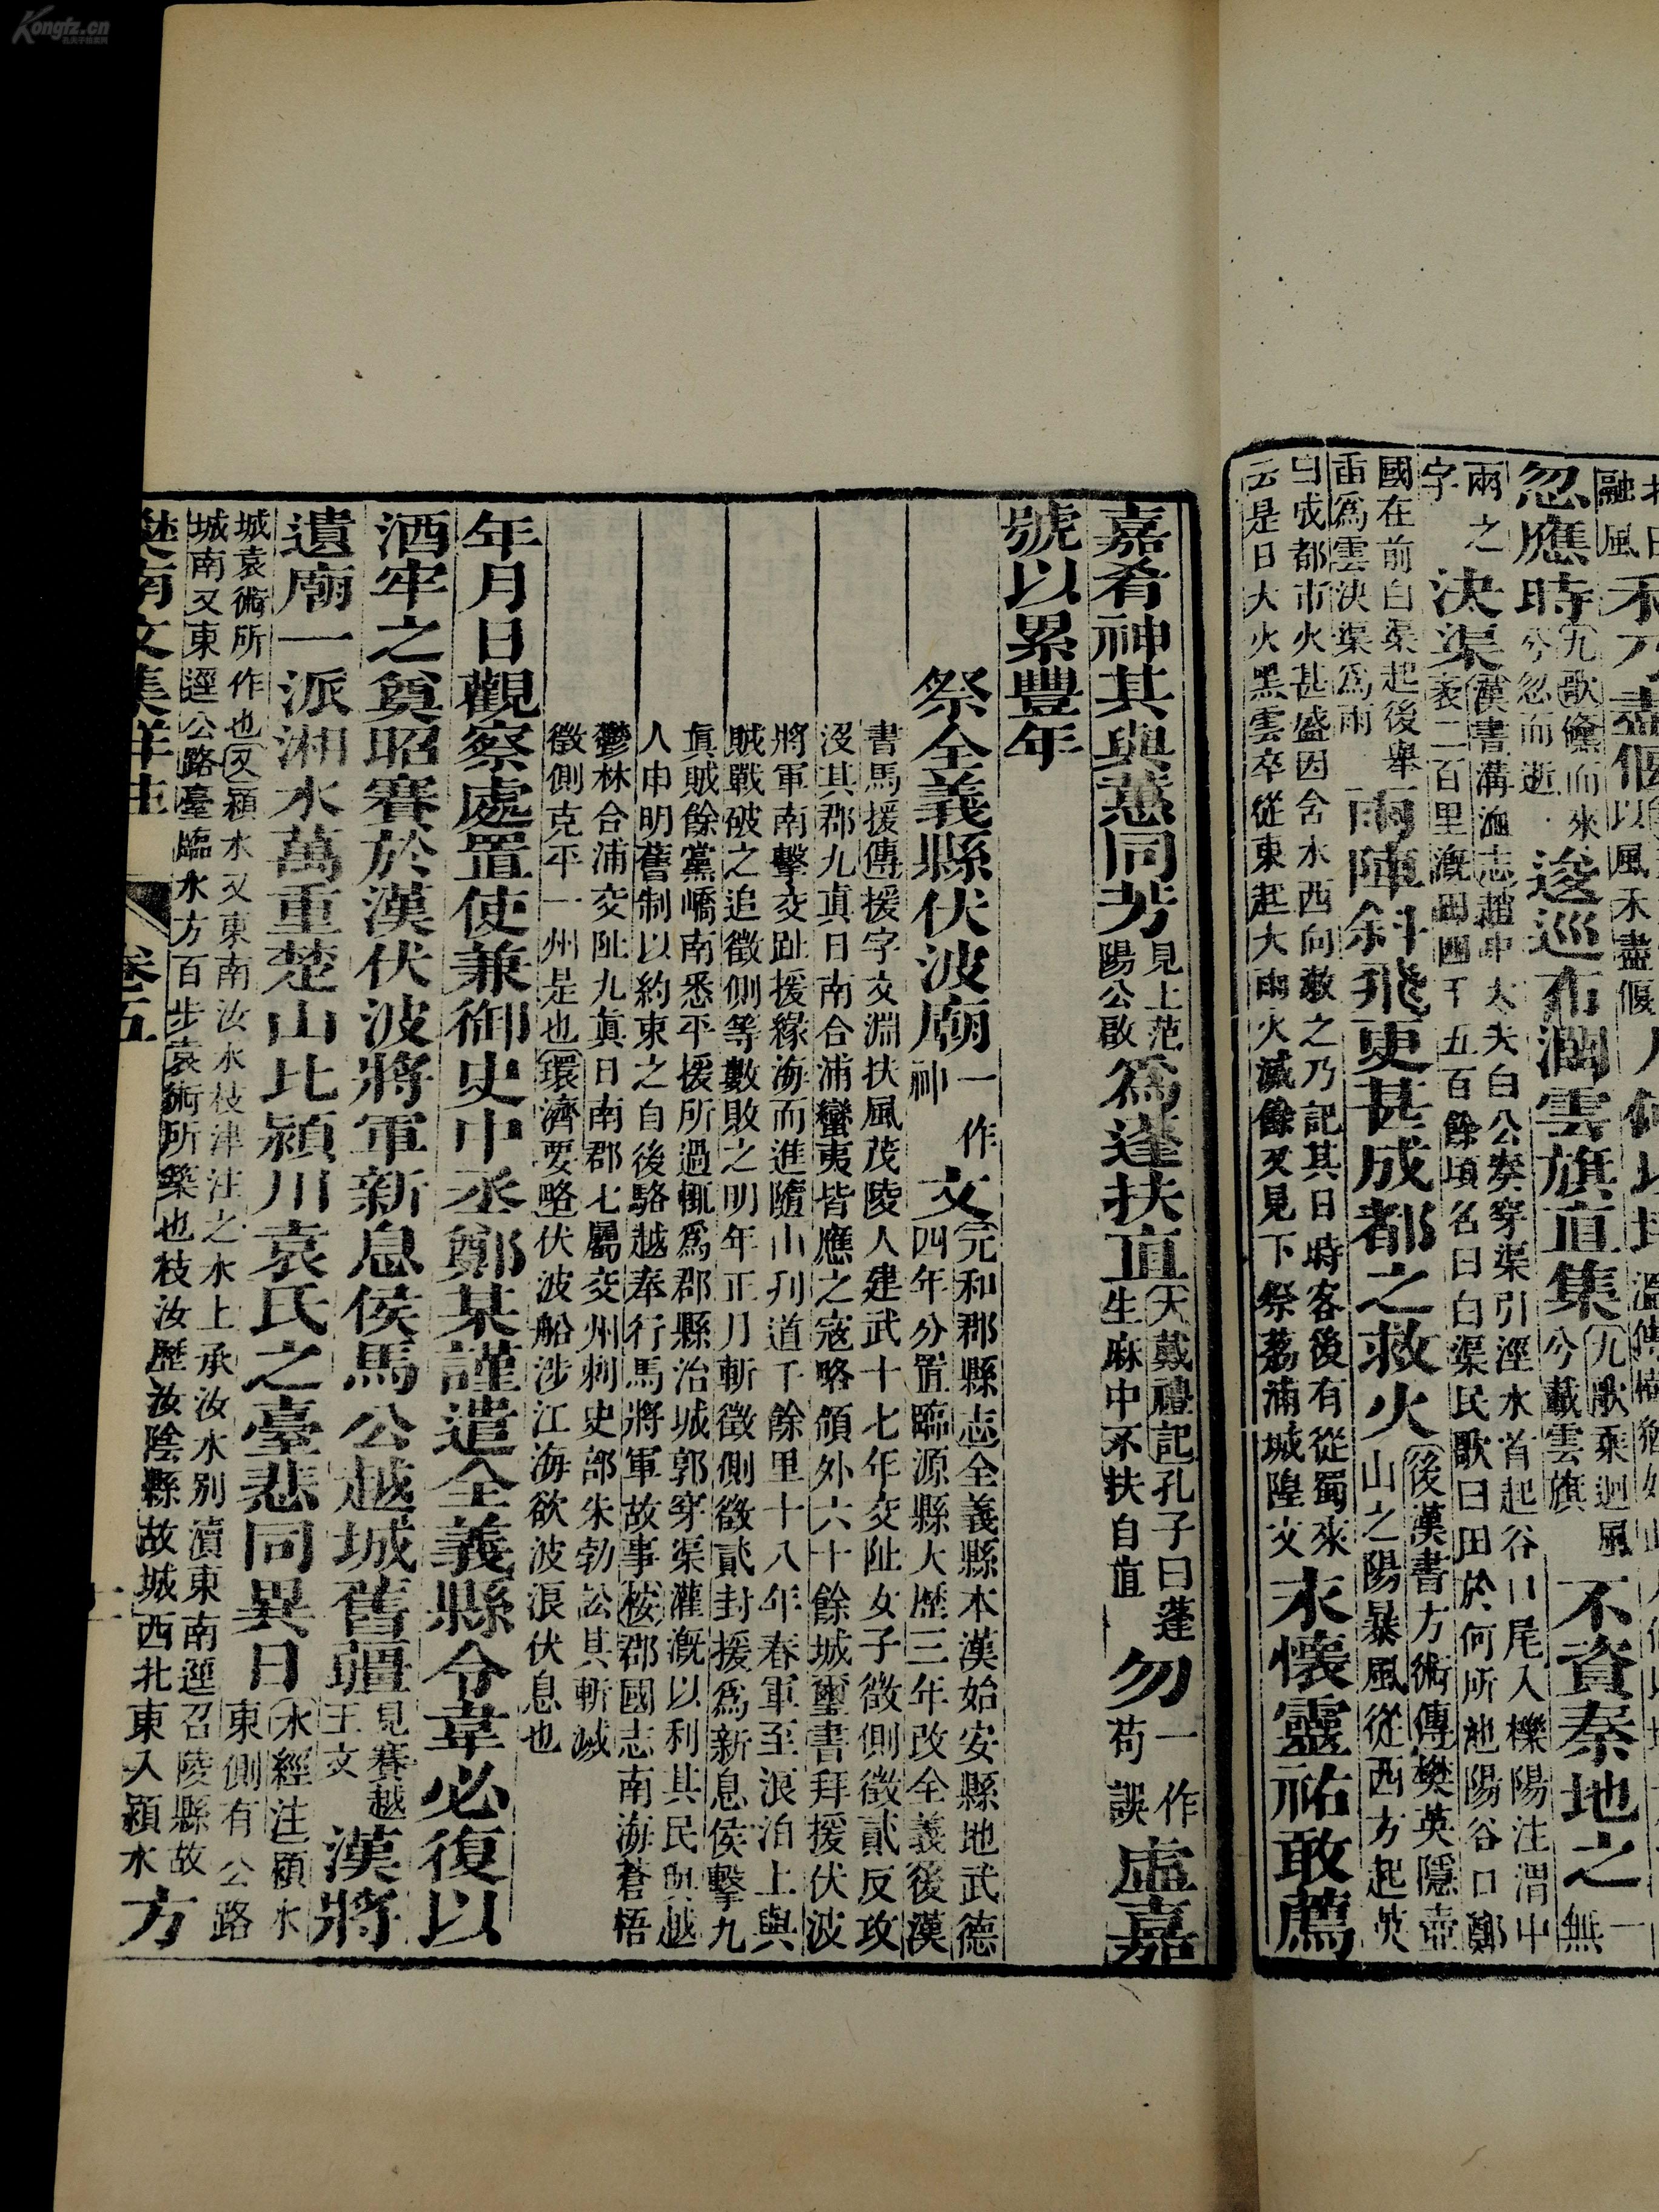 融風禾乃盡偃以風禾盡偃
忽應時九歌儵而來兮忽而逝逡巡布潤雲旗直集九歌乘迴風兮載雲旗不資秦地之一無
兩之字決渠漢書溝洫志趙中大夫白公奏穿渠引涇水首起谷口尾入櫟陽注渭中袤二百里漑田四千五百餘頃名曰白渠民歌曰田於何所池陽谷口鄭
國在前白渠起後舉臿爲雲決渠爲雨雨陣斜飛更甚成都之救火後漢書方術傳樊英隱壺山之陽暴風從西方起英
曰成都市火甚盛因含水西向漱之乃記其日時客後有從蜀來云是日大火黑雲卒從東起大雨火滅餘又見下祭荔浦城隍文永懷靈祐敢薦
嘉肴神其與蕙同芳見上范陽公啟爲蓬扶直大戴禮記孔子曰蓬生麻中不扶自直勿一作苟誤虛嘉
號以累豐年
祭全義縣伏波廟一作神文元和郡縣志全義縣本漢始安縣地武德四年分置臨源縣大歷三年改全義後漢
書馬援傳援字文淵扶風茂陵人建武十七年交阯女子徵側徵貳反攻沒其郡九眞日南合浦蠻夷皆應之寇略嶺外六十餘城璽書拜援伏波
將軍南擊交趾援緣海而進隨山刋道千餘里十八年春軍至浪泊上與賊戰破之追徵側等數敗之明年正月斬徵側徵貳封援爲新息侯擊九
眞賊餘黨嶠南悉平援所過輒爲郡縣治城郭穿渠灌漑以利其民與越人申明舊制以約束之自後駱越奉行馬將軍故事按郡國志南海蒼梧
鬱林合浦交阯九眞日南郡七屬交州刺史部朱勃訟其斬滅徵側克平一州是也環濟要略伏波船涉江海欲波浪伏息也
年月日觀察處置使兼御史中丞鄭某謹遣全義縣令韋必復以
酒牢之奠昭賽於漢伏波將軍新息侯馬公越城舊疆見賽越王文漢將
遺廟一派湘水萬重楚山比潁川袁氏之臺悲同異日水經注潁水東側有公路
城袁術所作也又潁水又東南汝水枝津注之水上承汝水別瀆東南逕召陵縣故城南又東逕公路臺臨水方百步袁術所築也枝汝歷汝陰縣故城西北東入潁水方
樊南文集詳註 卷五
Kongfz.cn
孔夫子旧书网